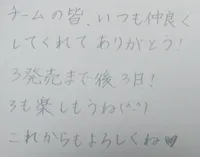 チームの皆、いつも仲良く
してくれてありがとう!
3発売まで後3日!
3も楽しもうね(^^)
これからもよろしくね♥